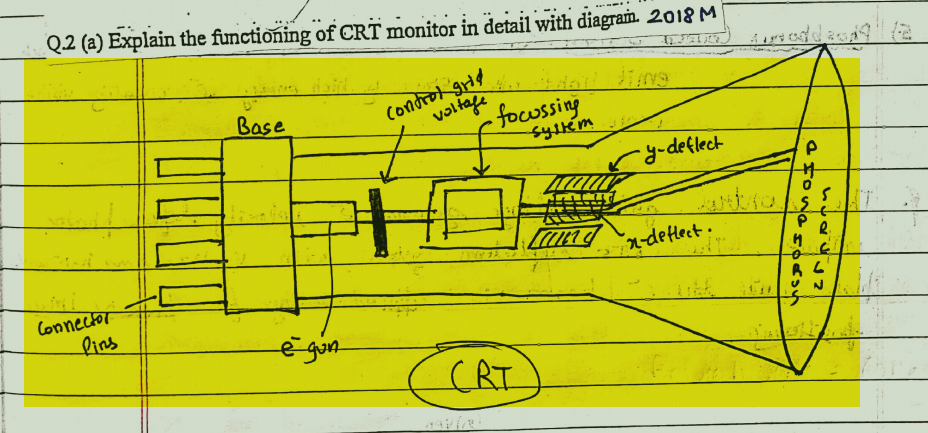 Q.2 (a) Explain the functioning of CRT monitor in detail with diagram. 2018 M
Base
control grid
voltage
focussing
system
y-deflect
x-deflect.
PHOSPHORUS
SCREEN
Connector
Pins
e⁻ gun
CRT